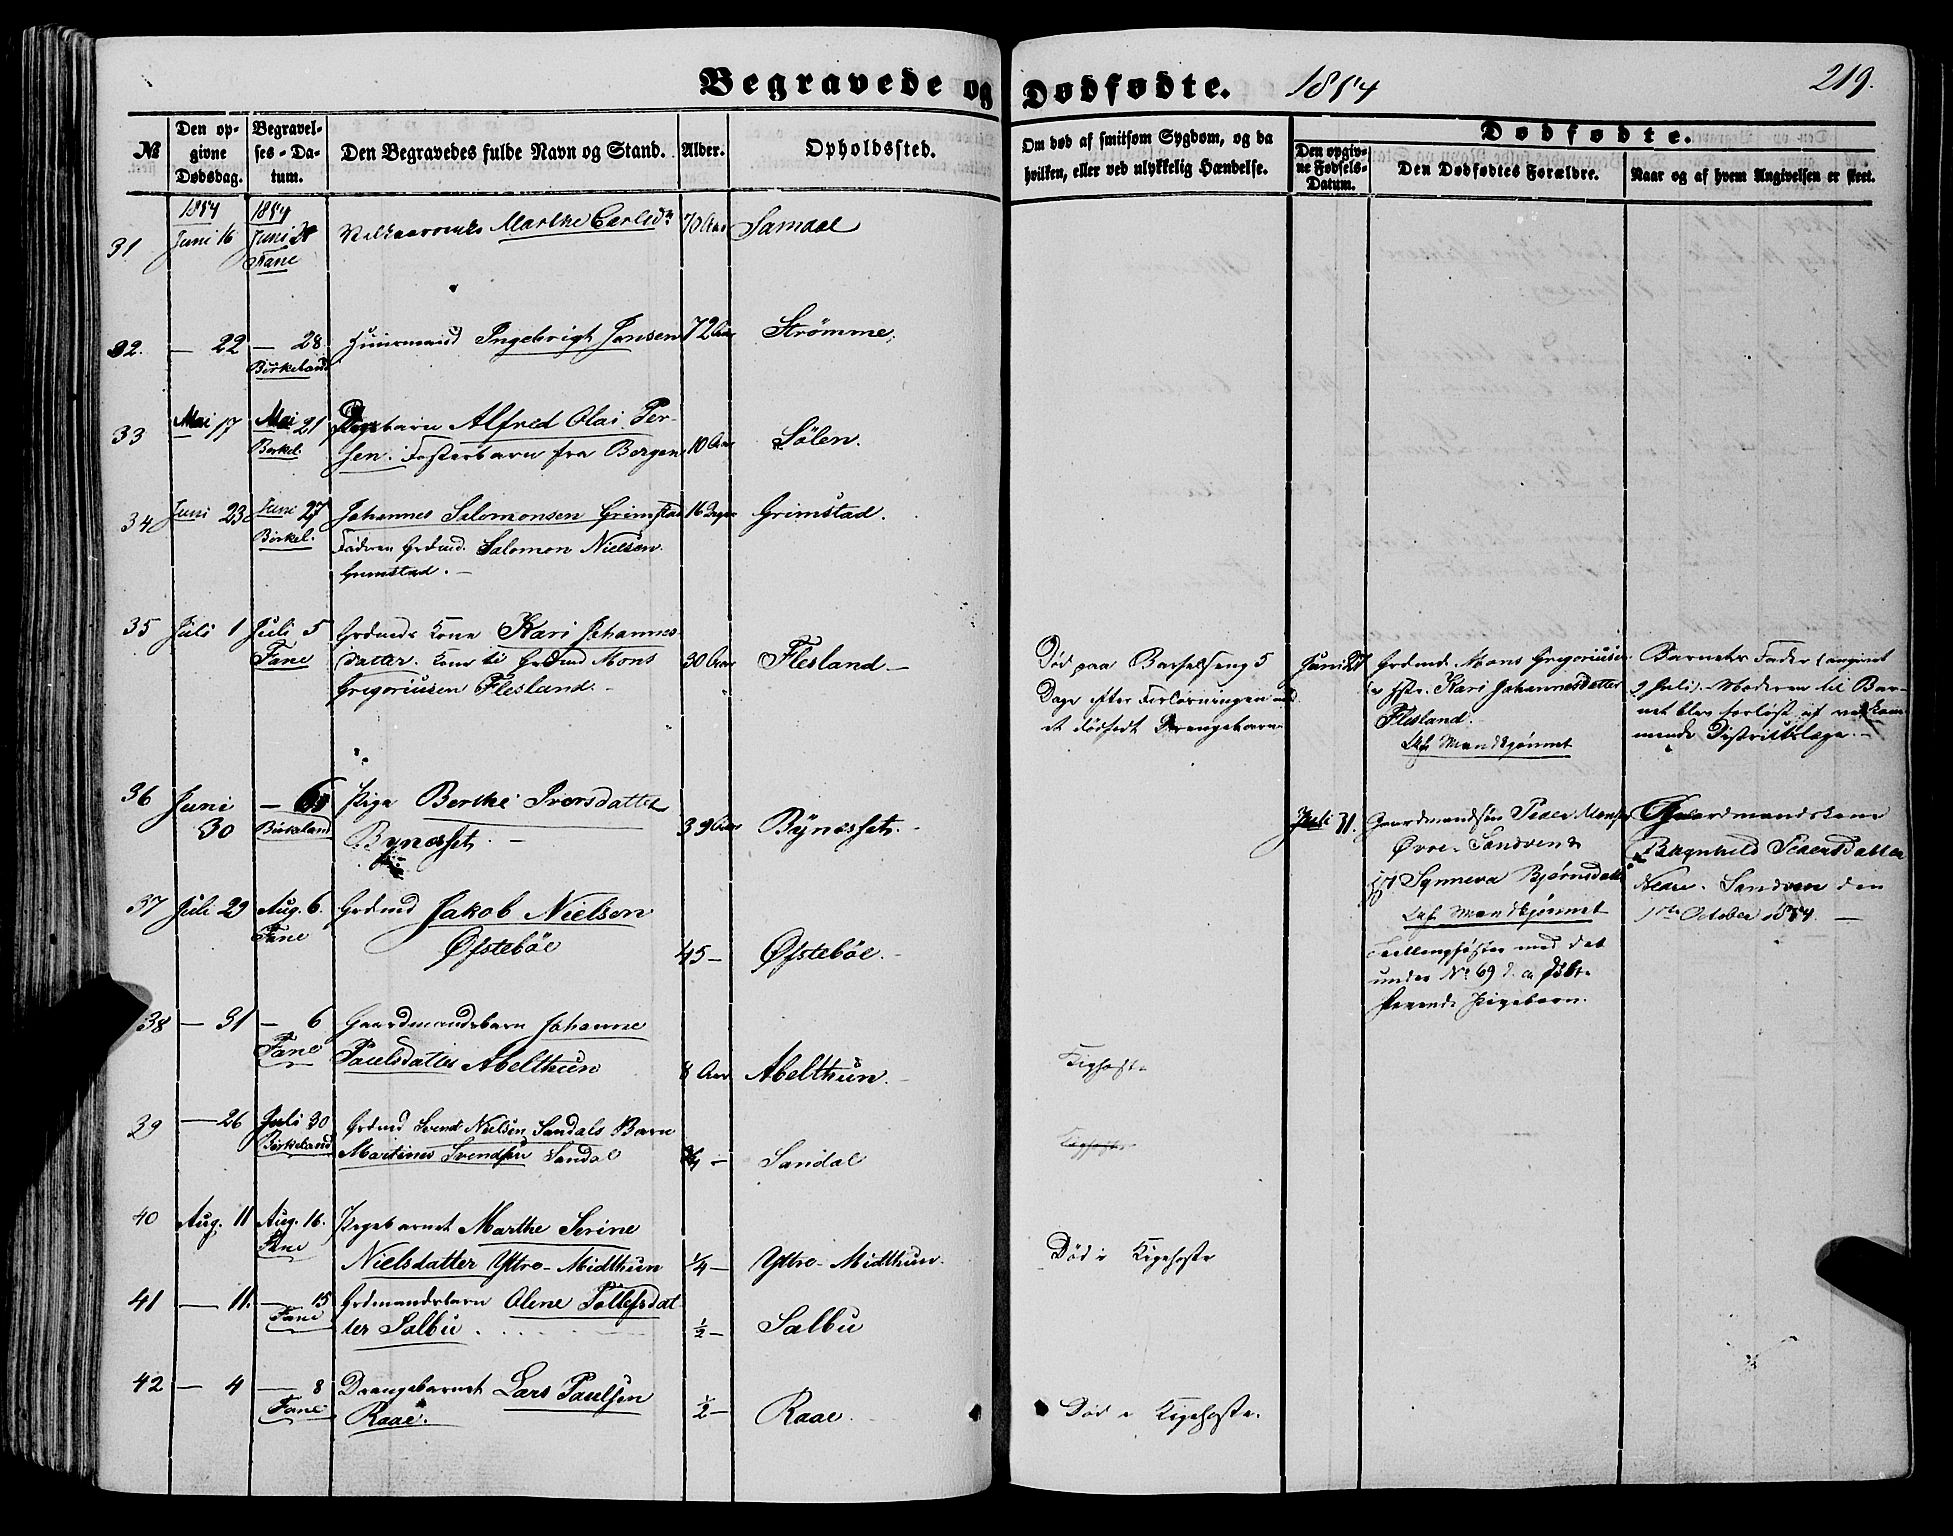 Begravede og Dødfødte. 1854 219.
№ Den opgivne Dødsdag. Begravelses-Datum. Den Begravedes fulde Navn og Stand. Alder. Opholdssted. Om død af smitsom Sygdom, og da hvilken, eller ved ulykkelig Hændelse. Dødfødte. Den opgivne Fødsels-Datum. Den Dødfødtes Forældre. Naar og af hvem Angivelsen er skeet.
1854 1854
31 Juni 16 Juni Marthe Carlsdr 70 Aar Samdal
Fane
32. — 22 — 28. Huusmand Ingebrigt Jansen 72 Aar Strømme,
Birkeland
33 Mai 17 Mai 21 Alfred Olai Per-
Birkel. sen. Fosterbarn fra Bergen 10 Aar Sölen.
34 Juni 23 Juni 27 Johannes Salomonsen Grimstad 16 Dage Grimstad.
Birkel. Faderen Grdmd. Salomon Nielsen
Grimstad. —
35 Juli 1 Juli 5 Grdmds Kone Kari Johannes-
Fane datter. Kone til Grdmd Mons 30 Aar Flesland —
Gregoriusen Flesland. —
Død paa Barselseng 5
Dage efter Forløsningen med
et dødfødt Drengebarn
Juni 27 Grdmd. Mons Gregoriusen
Hstr. Kari Johannesdatter
Flesland.
Mandkjønnet
Barnets Fader (angivet
2 Juli). Moderen til Bar-
net blev forløst af vedkom-
mende Districtslæge. —
36 Juni 30 — 6 Pige Berthe Iversdatter
Birkeland Bynesset. — 39 Aar Bynesset. —
Juli 31. Gaardmandssøn Peder Monsen
Øvre-Sandven &
Synneva Bjørnsdatter
Mandkjønnet
Tvillingfoster med det
under No 69 d. a. døbte
Pigebarn.
Gaardmandskone
Ragnhild Pedersdatter
Nedre-Sandven den
1ste October 1854. —
37 Juli 29 Aug. 6. Grdmd Jakob Nielsen
Fane Øfstebøe 45 — Øfstebøe. —
38 — 31 — 6 Gaardmandsbarn Johanne
Fane Paulsdatter Abelthun 8 Aar Abelthun. — Kighoste
39 — 26 Juli 30 Grdmd Svend Nielsen Sandals Barn
Birkeland Martines Svendsen Sandal 3/4 — Sandal Kighoste
40 Aug. 11 Aug. 16. Pigebarnet Marthe Serine
Fane Nielsdatter Yttre-Midthun 1/4 — Yttre-Midthun. Død i Kigehoste
41 — 11. — 15 Grdmandsbarn Olene Tollefsdat-
Fane ter Salbu. 1/2 — Salbu
42 — 4 — 8 Drengebarnet Lars Paulsen
Fane Raae. 1/2 — Raae. Død i Kigehoste.